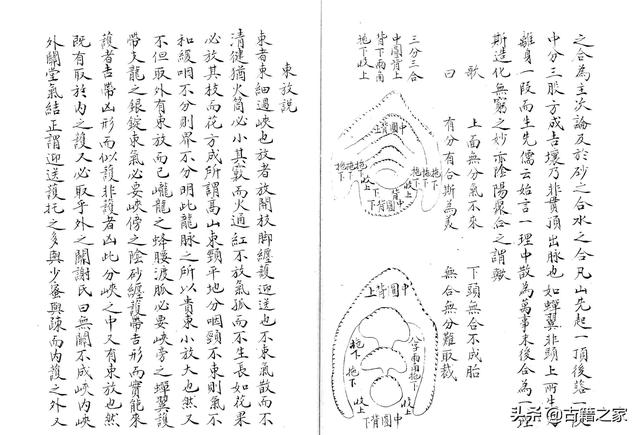 之合為主次論及於砂之合水之合凡山先起一頂後落一
中分三股方成吉壤乃非貫頂出脉也如蟬翼非頭上兩生
離身一段而生先儒云始言一理中散為萬事末後合為一理
斯造化無窮之妙亦陰陽聚合之謂歟
歌 上面無分氣不來 下頭無合不成胎
曰 有分有合斯為美 無合無分難取裁
三分三合
中圍背上
背下兩
拖下
上背圍中
拖下
拖下
拖下
下背圍中
上背圍中
拖下
拖下
下背圍中
束放說
束者束細過峽也放者放開枝脚纏護迎送也不束氣散而不
清健猶火筒必小其竅而火通紅不放氣孤而不生長如花果
必放其技而花方成所謂高山束頸平地分咽頸不束則氣不
和緩咽不分則界不分明此龍脉之所以貴束小放大也然又
不但取外有束放而已巃龍之蜂腰渡脉必要峽旁之蟬翼護
帶支龍之銀錠束氣必要峽傍之陰砂纏護帶吉形而實能來
護者吉帶凶形而似護非護者凶此分峽之中又有束放也然
既有取於內之護又必取乎外之關謝氏曰無關不成峽內峽
外關堂氣結正謂迎送護托之多與少蜜與踈而內護之外又
头条 @古籍之家